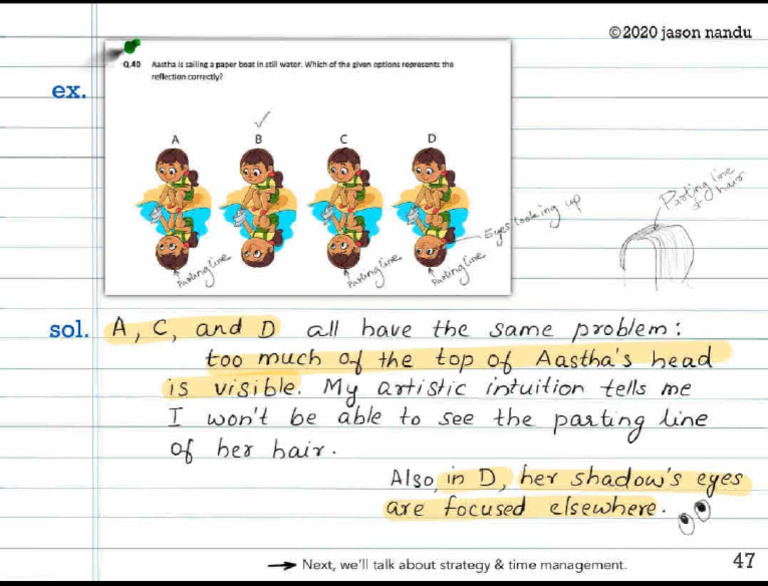 ©2020 jason nandu
ex.
Q.40 Aastha is sailing a paper boat in still water. Which of the given options represents the
reflection correctly?
✓
A B C D
Parting line
Parting line
Parting line
Eyes looking up
Parting line
of hair
sol. A, C, and D all have the same problem:
too much of the top of Aastha's head
is visible. My artistic intuition tells me
I won't be able to see the parting line
of her hair.
Also, in D, her shadow's eyes
are focused elsewhere.
→ Next, we'll talk about strategy & time management.
47